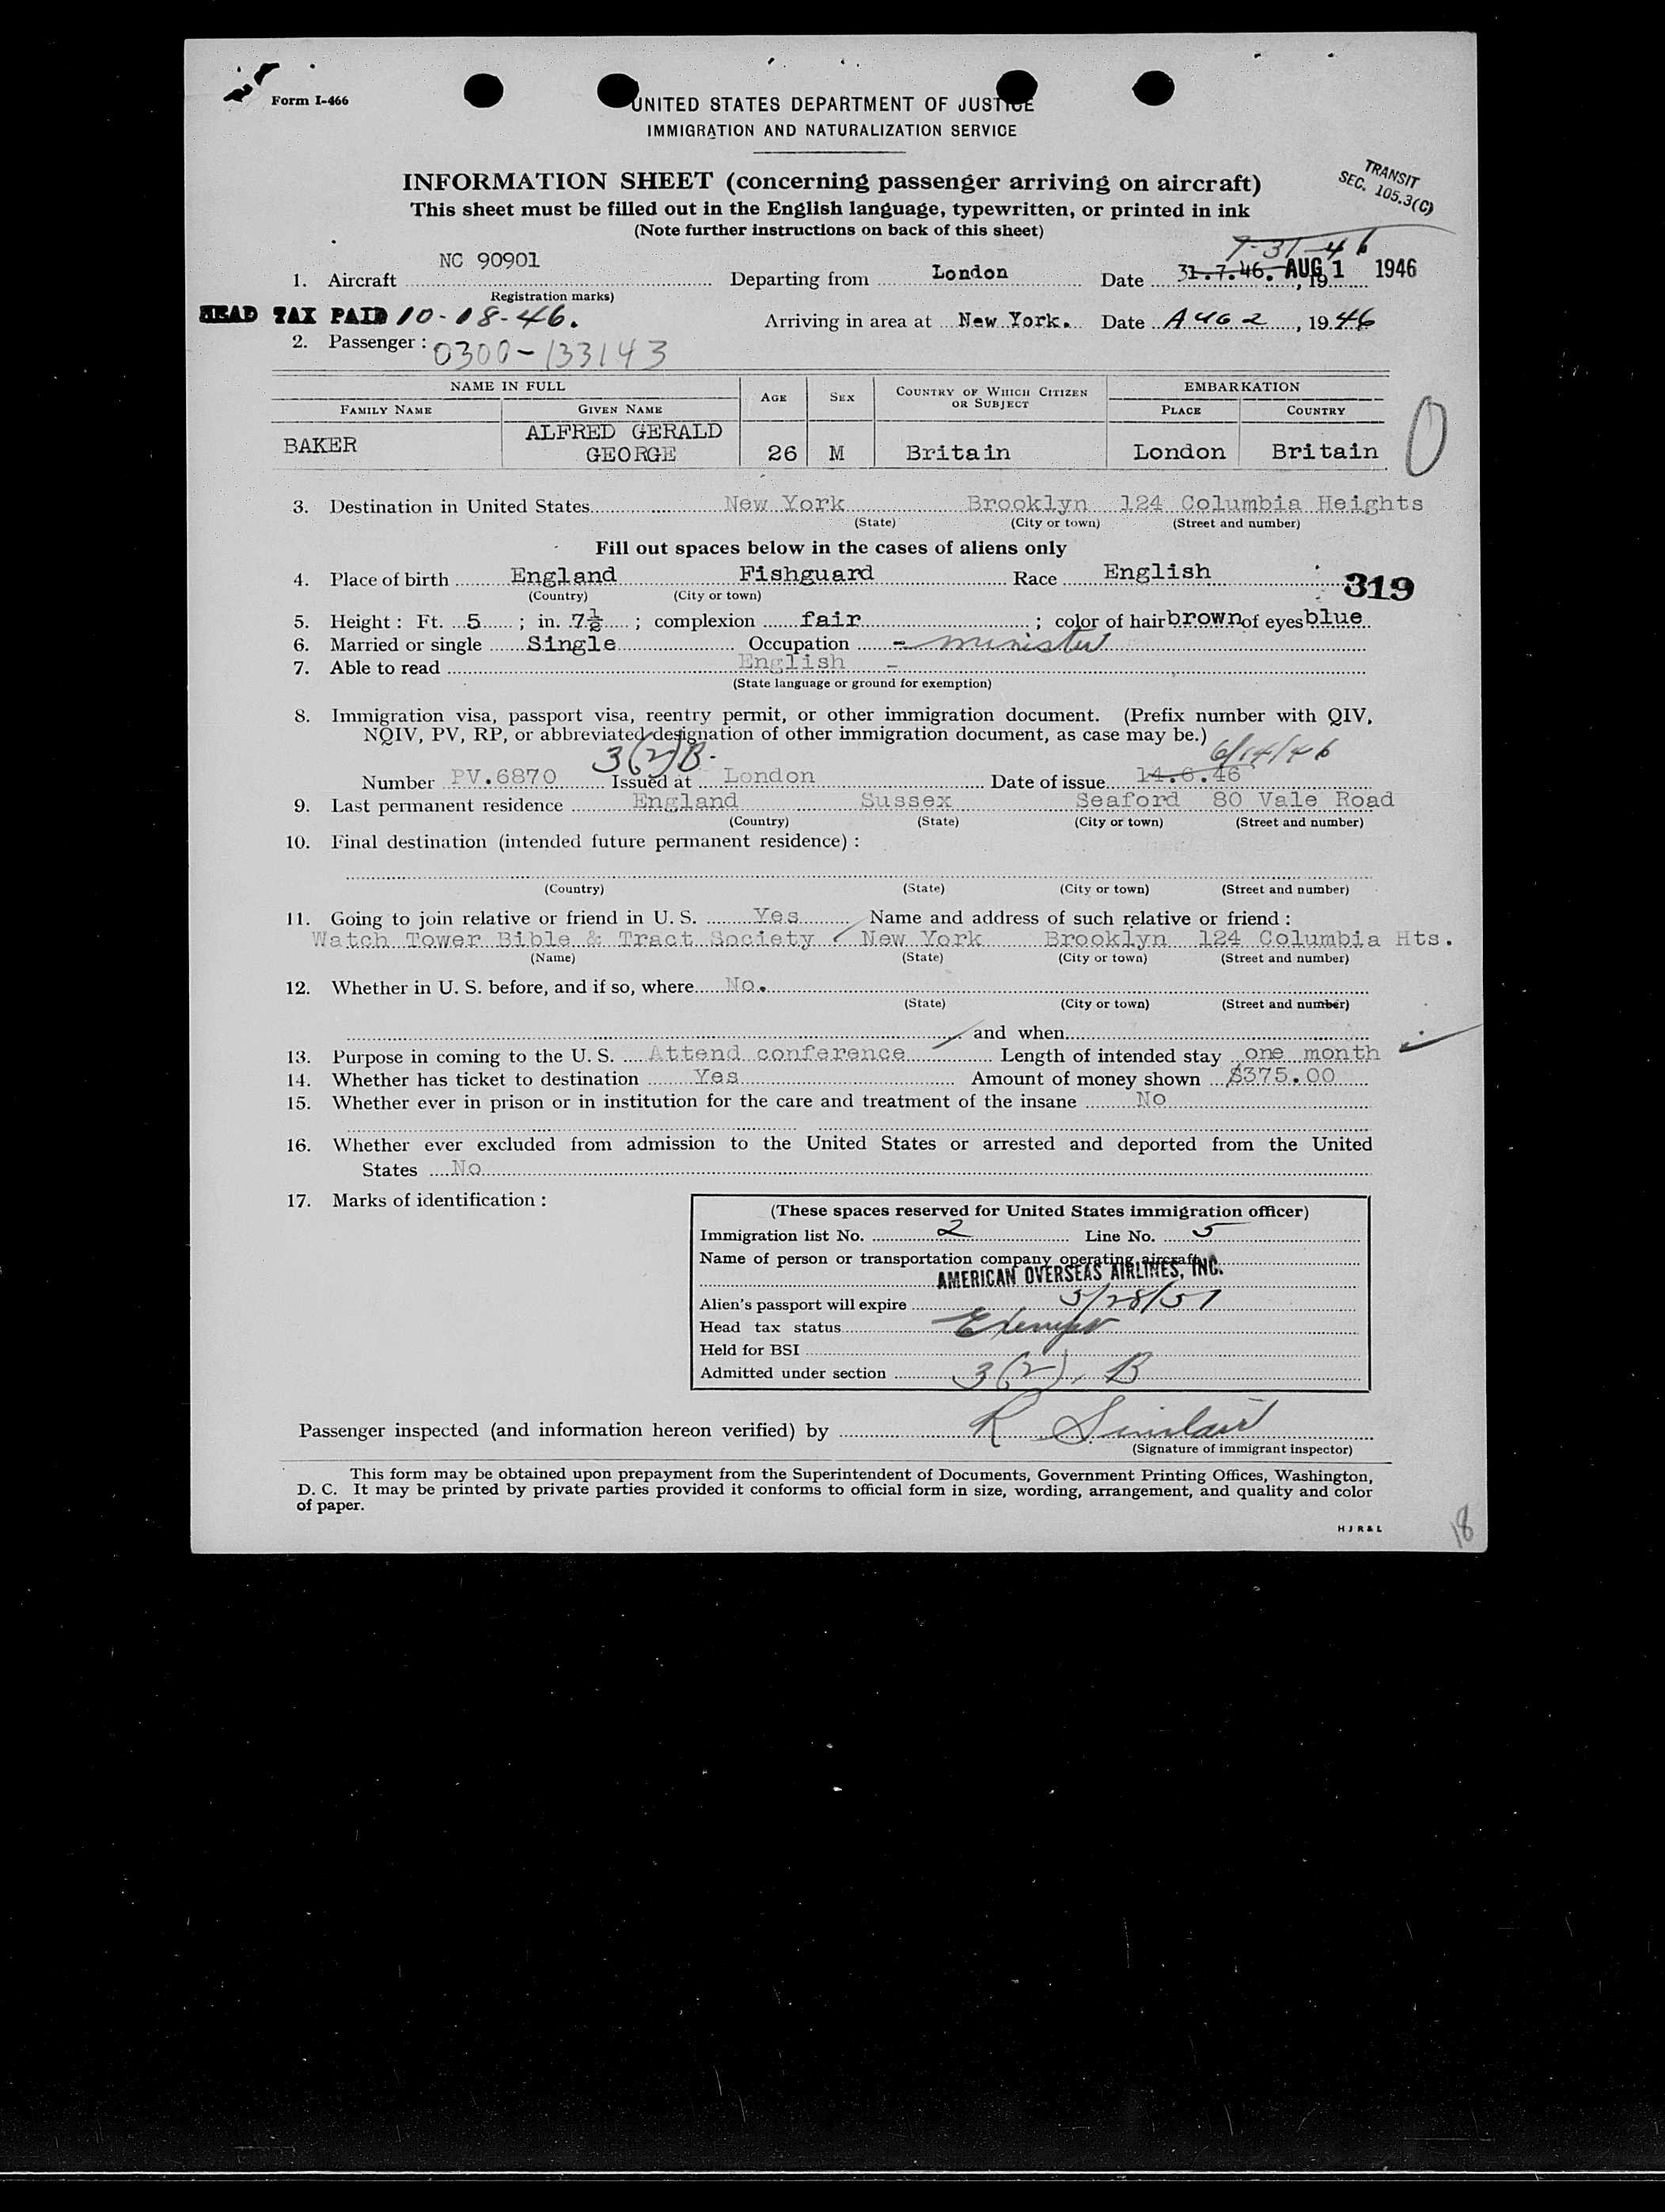 Form I-466
UNITED STATES DEPARTMENT OF JUSTICE
IMMIGRATION AND NATURALIZATION SERVICE
INFORMATION SHEET (concerning passenger arriving on aircraft)
TRANSIT
SEC. 105.3(C)
This sheet must be filled out in the English language, typewritten, or printed in ink
(Note further instructions on back of this sheet)
7-31-46
1. Aircraft NC 90901 Departing from London Date 31.7.46. AUG 1 1946, 19
(Registration marks)
HEAD TAX PAID 10-18-46.
Arriving in area at New York. Date AUG 2, 1946
2. Passenger: 0300-133143
NAME IN FULL AGE SEX COUNTRY OF WHICH CITIZEN OR SUBJECT EMBARKATION
FAMILY NAME GIVEN NAME PLACE COUNTRY
BAKER ALFRED GERALD GEORGE 26 M Britain London Britain
0
3. Destination in United States New York Brooklyn 124 Columbia Heights
(State) (City or town) (Street and number)
Fill out spaces below in the cases of aliens only
4. Place of birth England Fishguard Race English
319
(Country) (City or town)
5. Height: Ft. 5; in. 7½; complexion fair; color of hair brown of eyes blue
6. Married or single Single Occupation - minister
7. Able to read English -
(State language or ground for exemption)
8. Immigration visa, passport visa, reentry permit, or other immigration document. (Prefix number with QIV,
NQIV, PV, RP, or abbreviated designation of other immigration document, as case may be.)
3(2)B. 6/14/46
Number PV.6870 Issued at London Date of issue 14.6.46
9. Last permanent residence England Sussex Seaford 80 Vale Road
(Country) (State) (City or town) (Street and number)
10. Final destination (intended future permanent residence):
(Country) (State) (City or town) (Street and number)
11. Going to join relative or friend in U. S. Yes Name and address of such relative or friend:
Watch Tower Bible & Tract Society New York Brooklyn 124 Columbia Hts.
(Name) (State) (City or town) (Street and number)
12. Whether in U. S. before, and if so, where No.
(State) (City or town) (Street and number)
and when
13. Purpose in coming to the U. S. Attend conference Length of intended stay one month
14. Whether has ticket to destination Yes Amount of money shown $375.00
15. Whether ever in prison or in institution for the care and treatment of the insane No
16. Whether ever excluded from admission to the United States or arrested and deported from the United
States No
17. Marks of identification:
(These spaces reserved for United States immigration officer)
Immigration list No. 2 Line No. 5
Name of person or transportation company operating aircraft
AMERICAN OVERSEAS AIRLINES, INC.
Alien's passport will expire 5/28/51
Head tax status Exempt
Held for BSI
Admitted under section 3(2), B
Passenger inspected (and information hereon verified) by R Sinclair
(Signature of immigrant inspector)
This form may be obtained upon prepayment from the Superintendent of Documents, Government Printing Offices, Washington,
D. C. It may be printed by private parties provided it conforms to official form in size, wording, arrangement, and quality and color
of paper.
H J R & L
18